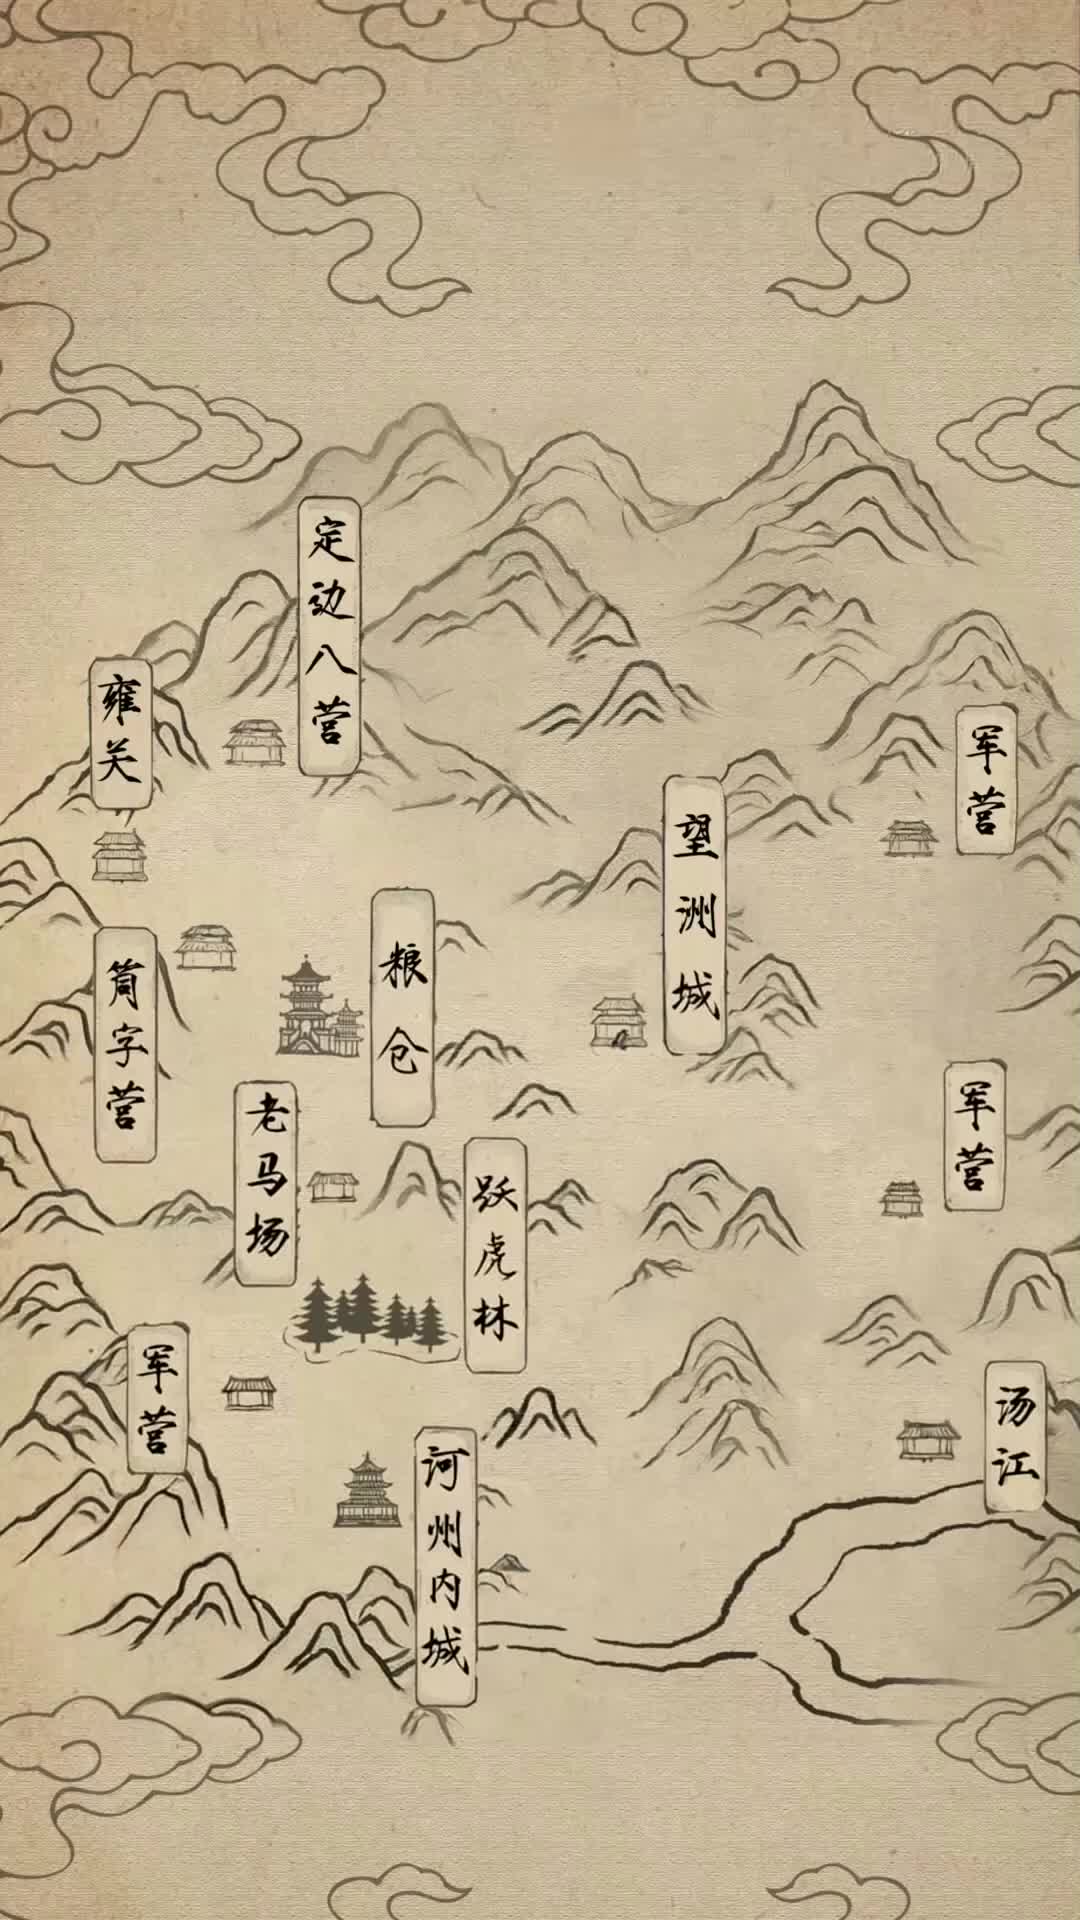 定边八营
雍关
军营
望洲城
粮仓
筒字营
老马场
军营
跃虎林
军营
汤江
河州内城